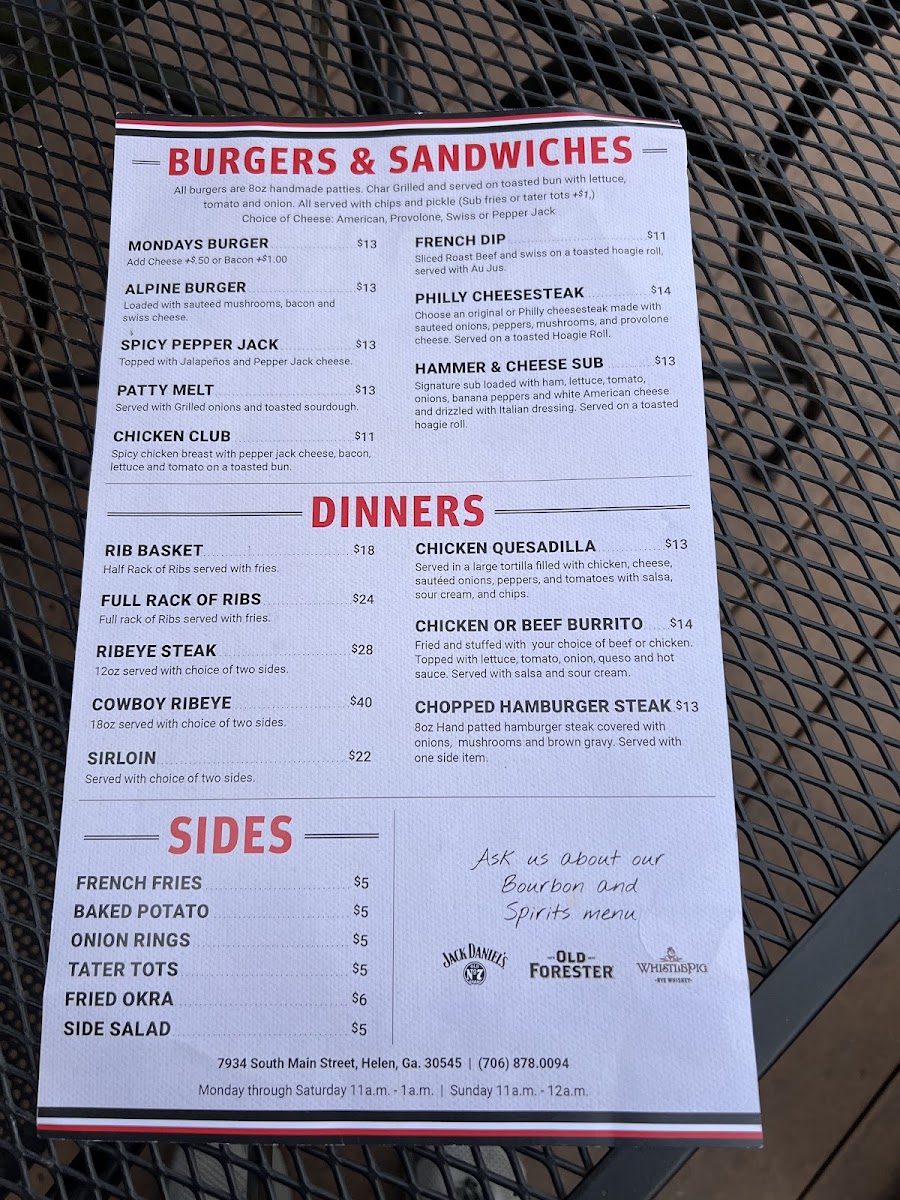 BURGERS & SANDWICHES
All burgers are 8oz handmade patties. Char Grilled and served on toasted bun with lettuce,
tomato and onion. All served with chips and pickle (Sub fries or tater tots +$1,)
Choice of Cheese: American, Provolone, Swiss or Pepper Jack
MONDAYS BURGER $13
Add Cheese +$.50 or Bacon +$1.00
ALPINE BURGER $13
Loaded with sauteed mushrooms, bacon and
swiss cheese.
SPICY PEPPER JACK $13
Topped with Jalapeños and Pepper Jack cheese.
PATTY MELT $13
Served with Grilled onions and toasted sourdough.
CHICKEN CLUB $11
Spicy chicken breast with pepper jack cheese, bacon,
lettuce and tomato on a toasted bun.
FRENCH DIP $11
Sliced Roast Beef and swiss on a toasted hoagie roll,
served with Au Jus.
PHILLY CHEESESTEAK $14
Choose an original or Philly cheesesteak made with
sauteed onions, peppers, mushrooms, and provolone
cheese. Served on a toasted Hoagie Roll.
HAMMER & CHEESE SUB $13
Signature sub loaded with ham, lettuce, tomato,
onions, banana peppers and white American cheese
and drizzled with Italian dressing. Served on a toasted
hoagie roll.
DINNERS
RIB BASKET $18
Half Rack of Ribs served with fries.
FULL RACK OF RIBS $24
Full rack of Ribs served with fries.
RIBEYE STEAK $28
12oz served with choice of two sides.
COWBOY RIBEYE $40
18oz served with choice of two sides.
SIRLOIN $22
Served with choice of two sides.
CHICKEN QUESADILLA $13
Served in a large tortilla filled with chicken, cheese,
sautéed onions, peppers, and tomatoes with salsa,
sour cream, and chips.
CHICKEN OR BEEF BURRITO $14
Fried and stuffed with your choice of beef or chicken.
Topped with lettuce, tomato, onion, queso and hot
sauce. Served with salsa and sour cream.
CHOPPED HAMBURGER STEAK $13
8oz Hand patted hamburger steak covered with
onions, mushrooms and brown gravy. Served with
one side item.
SIDES
FRENCH FRIES $5
BAKED POTATO $5
ONION RINGS $5
TATER TOTS $5
FRIED OKRA $6
SIDE SALAD $5
Ask us about our
Bourbon and
Spirits menu
JACK DANIEL'S
OLD No.7
OLD
FORESTER
WHISTLEPIG
RYE WHISKEY
7934 South Main Street, Helen, Ga. 30545 | (706) 878.0094
Monday through Saturday 11a.m. - 1a.m. | Sunday 11a.m. - 12a.m.